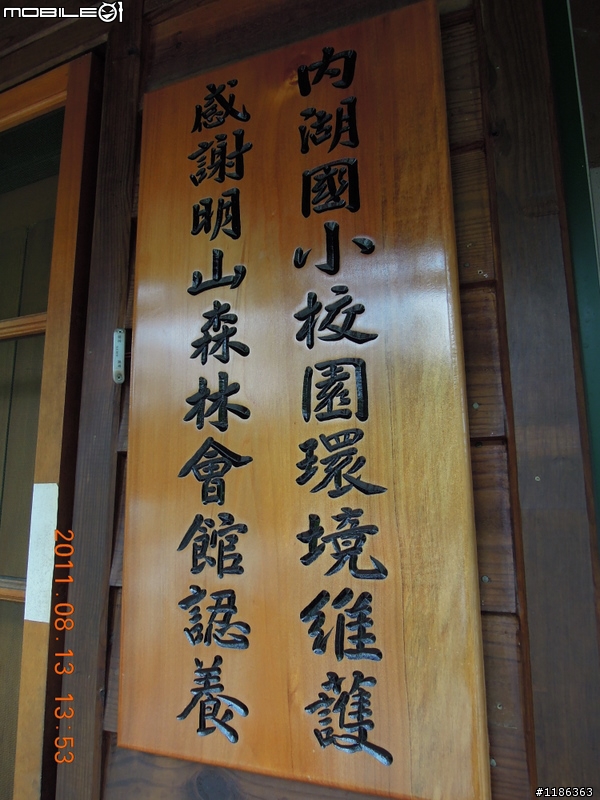 MOBILE01
內湖國小校園環境維護
感謝明山森林會館認養
2011.08.13 13:53
#1186363